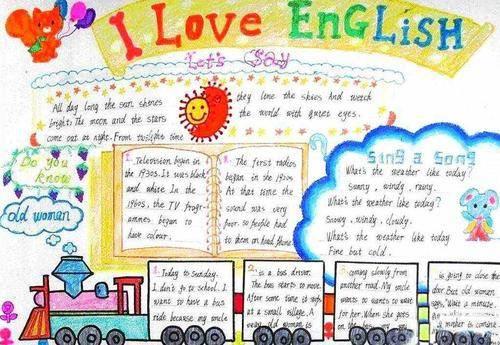 I LOVE ENGLISH
Let's Say
All day long the sun shines
bright. The moon and the stars
come out at night. From twilight time
they line the skies And watch
the world with quiet eyes.
Do you
know
old woman
1. Television began in
the 1930s. It was black
and white. In the
1960s, the TV progr-
ammes began to
have colour.
2. The first radios
began in the 1920s
At that time the
sound was very
poor. so people had
to them on head phone
sing a song
What's the weather like today?
Sunny, windy, rainy.
What's the weather like today?
Snowy, windy, cloudy.
What's the weather like today
Fine but cold.
1. Today to sunday.
I don't go to school. I
want to have a bus
ride because my uncle
2. is a bus driver.
The bus starts to move.
After some time it stops
at a small village. A
very old woman is
3. coming slowly from
another road. My uncle
wants to wants to wait
for her. When she gets
on the bus, my
is going to close the
door. But old woman
says, Wait a minute.
mother is coming.